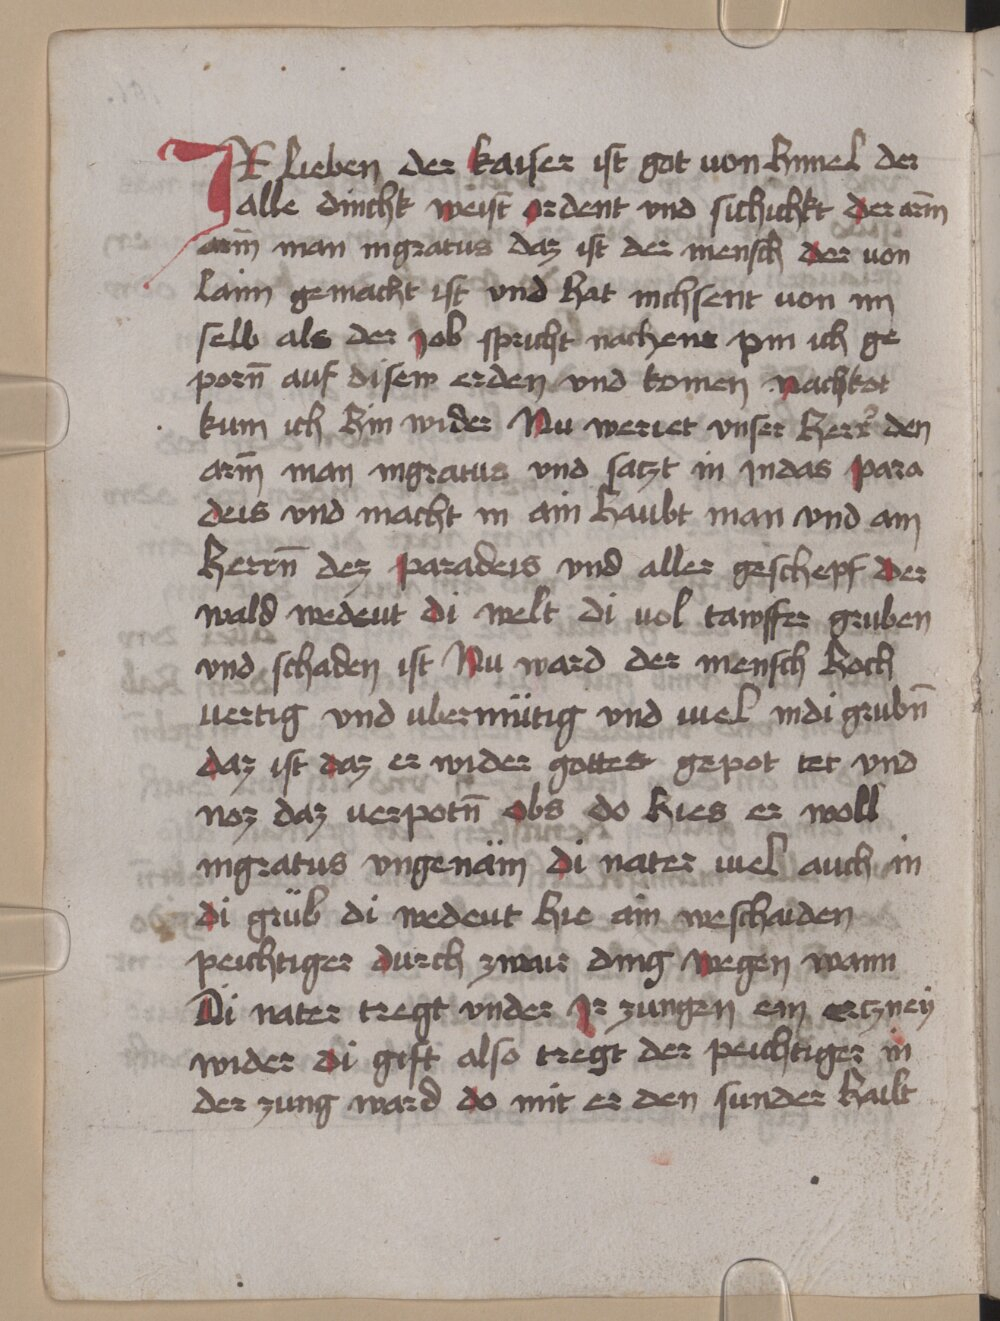 IR lieben der kaiser ist got von himel der
alle dinchk weist ordent vnd sichichkt der arm̄
arm̄ man ingratus daz ist der mensch der von
laim gemacht ist vnd hat nichsent von im
selb als der job spricht nachent pin ich ge
porn̄ auf disew erden vnd komen nachkot
kum ich hin wider Nu weriet vnser herr den
arm̄ man ingratus vnd satzt in indas para
deis vnd macht in ain haubt man vnd ain
herrn̄ dez paradeis vnd aller geschepf der
wald wedeut di welt di vol tawffer gruben
vnd schaden ist Nu ward der mensch hoch
uertig vnd ubermütig vnd uiel indi grubn̄
daz ist daz er wider gottes gepot tet vnd
noz daz uerpotn̄ obs do hies er woll
ingratus vngenäm di nater uiel auch in
di grüb di wedeut hie ain weschaiden
peichtiger durch zwair ding wegen wann
Di nater tregt vnder Ir zungen ein ertzney
wider di gift also tregt der peichtiger in
der zung ward do mit er den sunder hailt